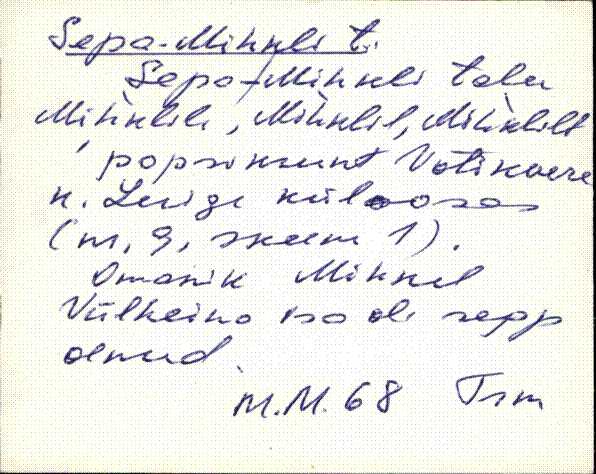 Sepa-Mihkli t.
Sepa-Mihkli talu
Mihklile, Mihklil, Mihklilt
popsikrunt Võtikvere
k. Luige külaosas
(m, 9, skeem 1).
Omanik Mihkel
Vülheino isa oli sepp
olnud.
M.M. 68 Trm